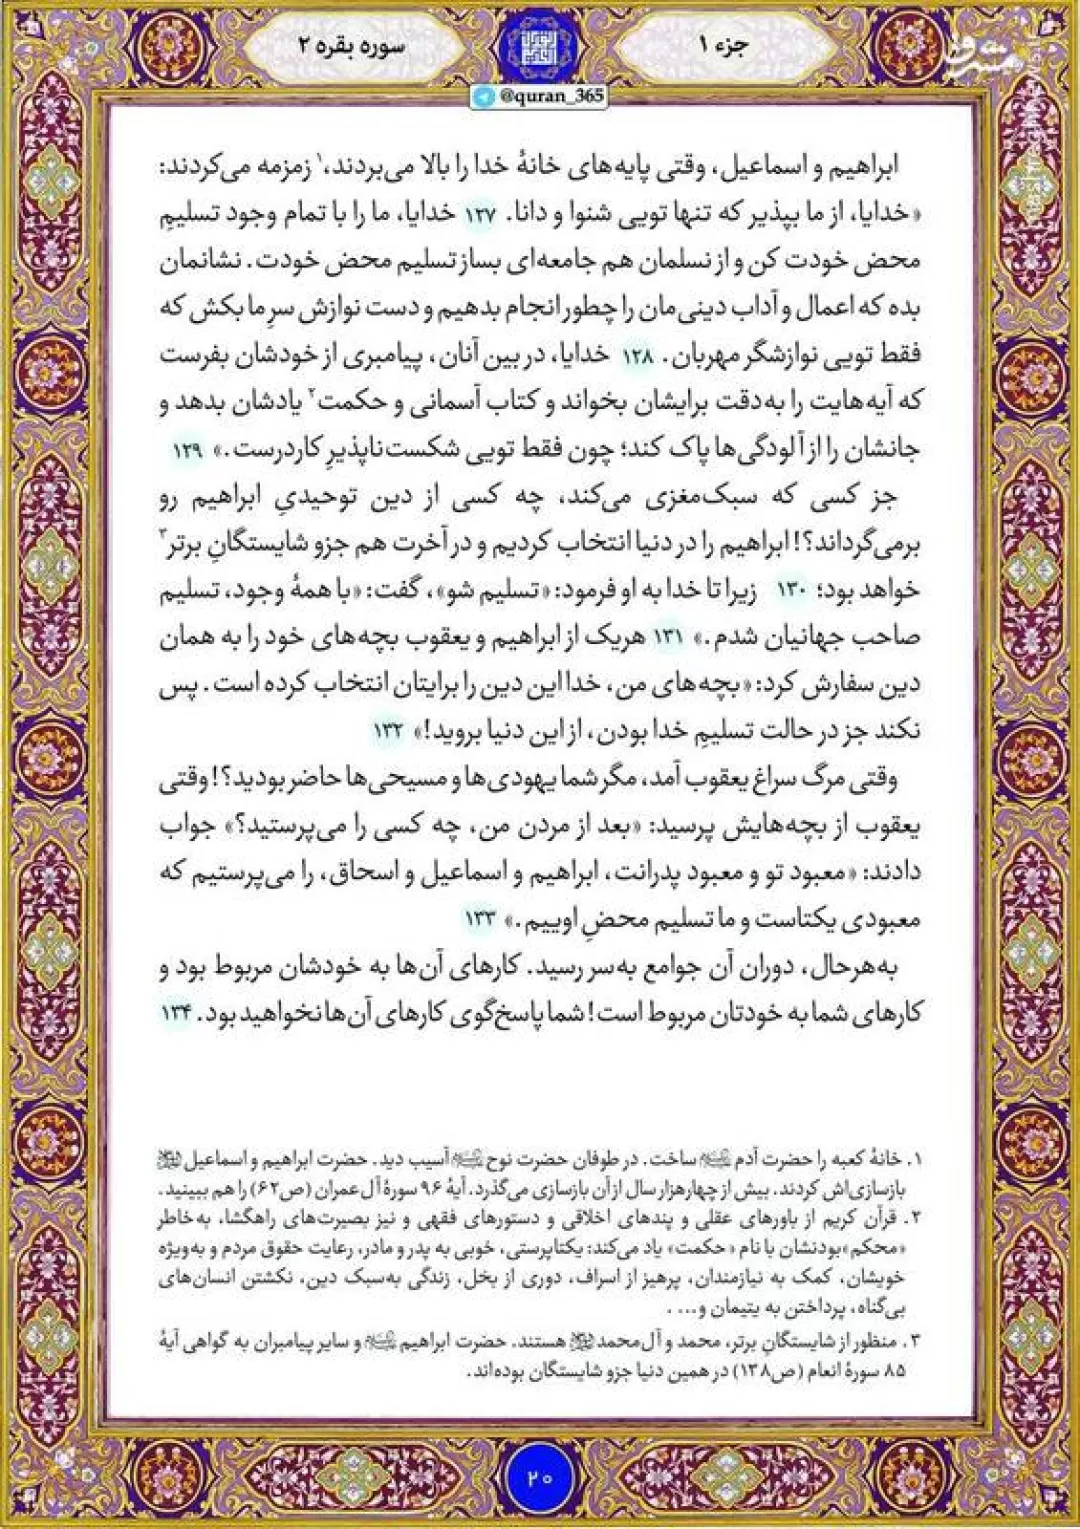 جزء ۱
سوره بقره ۲
@quran_365
مشرق
ابراهیم و اسماعیل، وقتی پایه‌های خانهٔ خدا را بالا می‌بردند،۱ زمزمه می‌کردند:
«خدایا، از ما بپذیر که تنها تویی شنوا و دانا. ۱۲۷ خدایا، ما را با تمام وجود تسلیمِ
محض خودت کن و از نسلمان هم جامعه‌ای بساز تسلیم محض خودت. نشانمان
بده که اعمال و آداب دینی‌مان را چطور انجام بدهیم و دست نوازش سرِ ما بکش که
فقط تویی نوازشگر مهربان. ۱۲۸ خدایا، در بین آنان، پیامبری از خودشان بفرست
که آیه‌هایت را به‌دقت برایشان بخواند و کتاب آسمانی و حکمت۲ یادشان بدهد و
جانشان را از آلودگی‌ها پاک کند؛ چون فقط تویی شکست‌ناپذیرِ کاردرست.» ۱۲۹
جز کسی که سبک‌مغزی می‌کند، چه کسی از دین توحیدیِ ابراهیم رو
برمی‌گرداند؟! ابراهیم را در دنیا انتخاب کردیم و در آخرت هم جزو شایستگانِ برتر۳
خواهد بود؛ ۱۳۰ زیرا تا خدا به او فرمود: «تسلیم شو»، گفت: «با همهٔ وجود، تسلیم
صاحب جهانیان شدم.» ۱۳۱ هریک از ابراهیم و یعقوب بچه‌های خود را به همان
دین سفارش کرد: «بچه‌های من، خدا این دین را برایتان انتخاب کرده است. پس
نکند جز در حالت تسلیمِ خدا بودن، از این دنیا بروید!» ۱۳۲
وقتی مرگ سراغ یعقوب آمد، مگر شما یهودی‌ها و مسیحی‌ها حاضر بودید؟! وقتی
یعقوب از بچه‌هایش پرسید: «بعد از مردن من، چه کسی را می‌پرستید؟» جواب
دادند: «معبود تو و معبود پدرانت، ابراهیم و اسماعیل و اسحاق، را می‌پرستیم که
معبودی یکتاست و ما تسلیم محضِ اوییم.» ۱۳۳
به‌هرحال، دوران آن جوامع به‌سر رسید. کارهای آن‌ها به خودشان مربوط بود و
کارهای شما به خودتان مربوط است! شما پاسخ‌گوی کارهای آن‌ها نخواهید بود. ۱۳۴
۱. خانهٔ کعبه را حضرت آدم ساخت. در طوفان حضرت نوح آسیب دید. حضرت ابراهیم و اسماعیل
بازسازی‌اش کردند. بیش از چهارهزار سال از آن بازسازی می‌گذرد. آیهٔ ۹۶ سورهٔ آل‌عمران (ص۶۲) را هم ببینید.
۲. قرآن کریم از باورهای عقلی و پندهای اخلاقی و دستورهای فقهی و نیز بصیرت‌های راهگشا، به‌خاطر
«محکم»بودنشان با نام «حکمت» یاد می‌کند: یکتاپرستی، خوبی به پدر و مادر، رعایت حقوق مردم و به‌ویژه
خویشان، کمک به نیازمندان، پرهیز از اسراف، دوری از بخل، زندگی به‌سبک دین، نکشتن انسان‌های
بی‌گناه، پرداختن به یتیمان و... .
۳. منظور از شایستگانِ برتر، محمد و آل‌محمد هستند. حضرت ابراهیم و سایر پیامبران به گواهی آیهٔ
۸۵ سورهٔ انعام (ص۱۳۸) در همین دنیا جزو شایستگان بوده‌اند.
۲۰